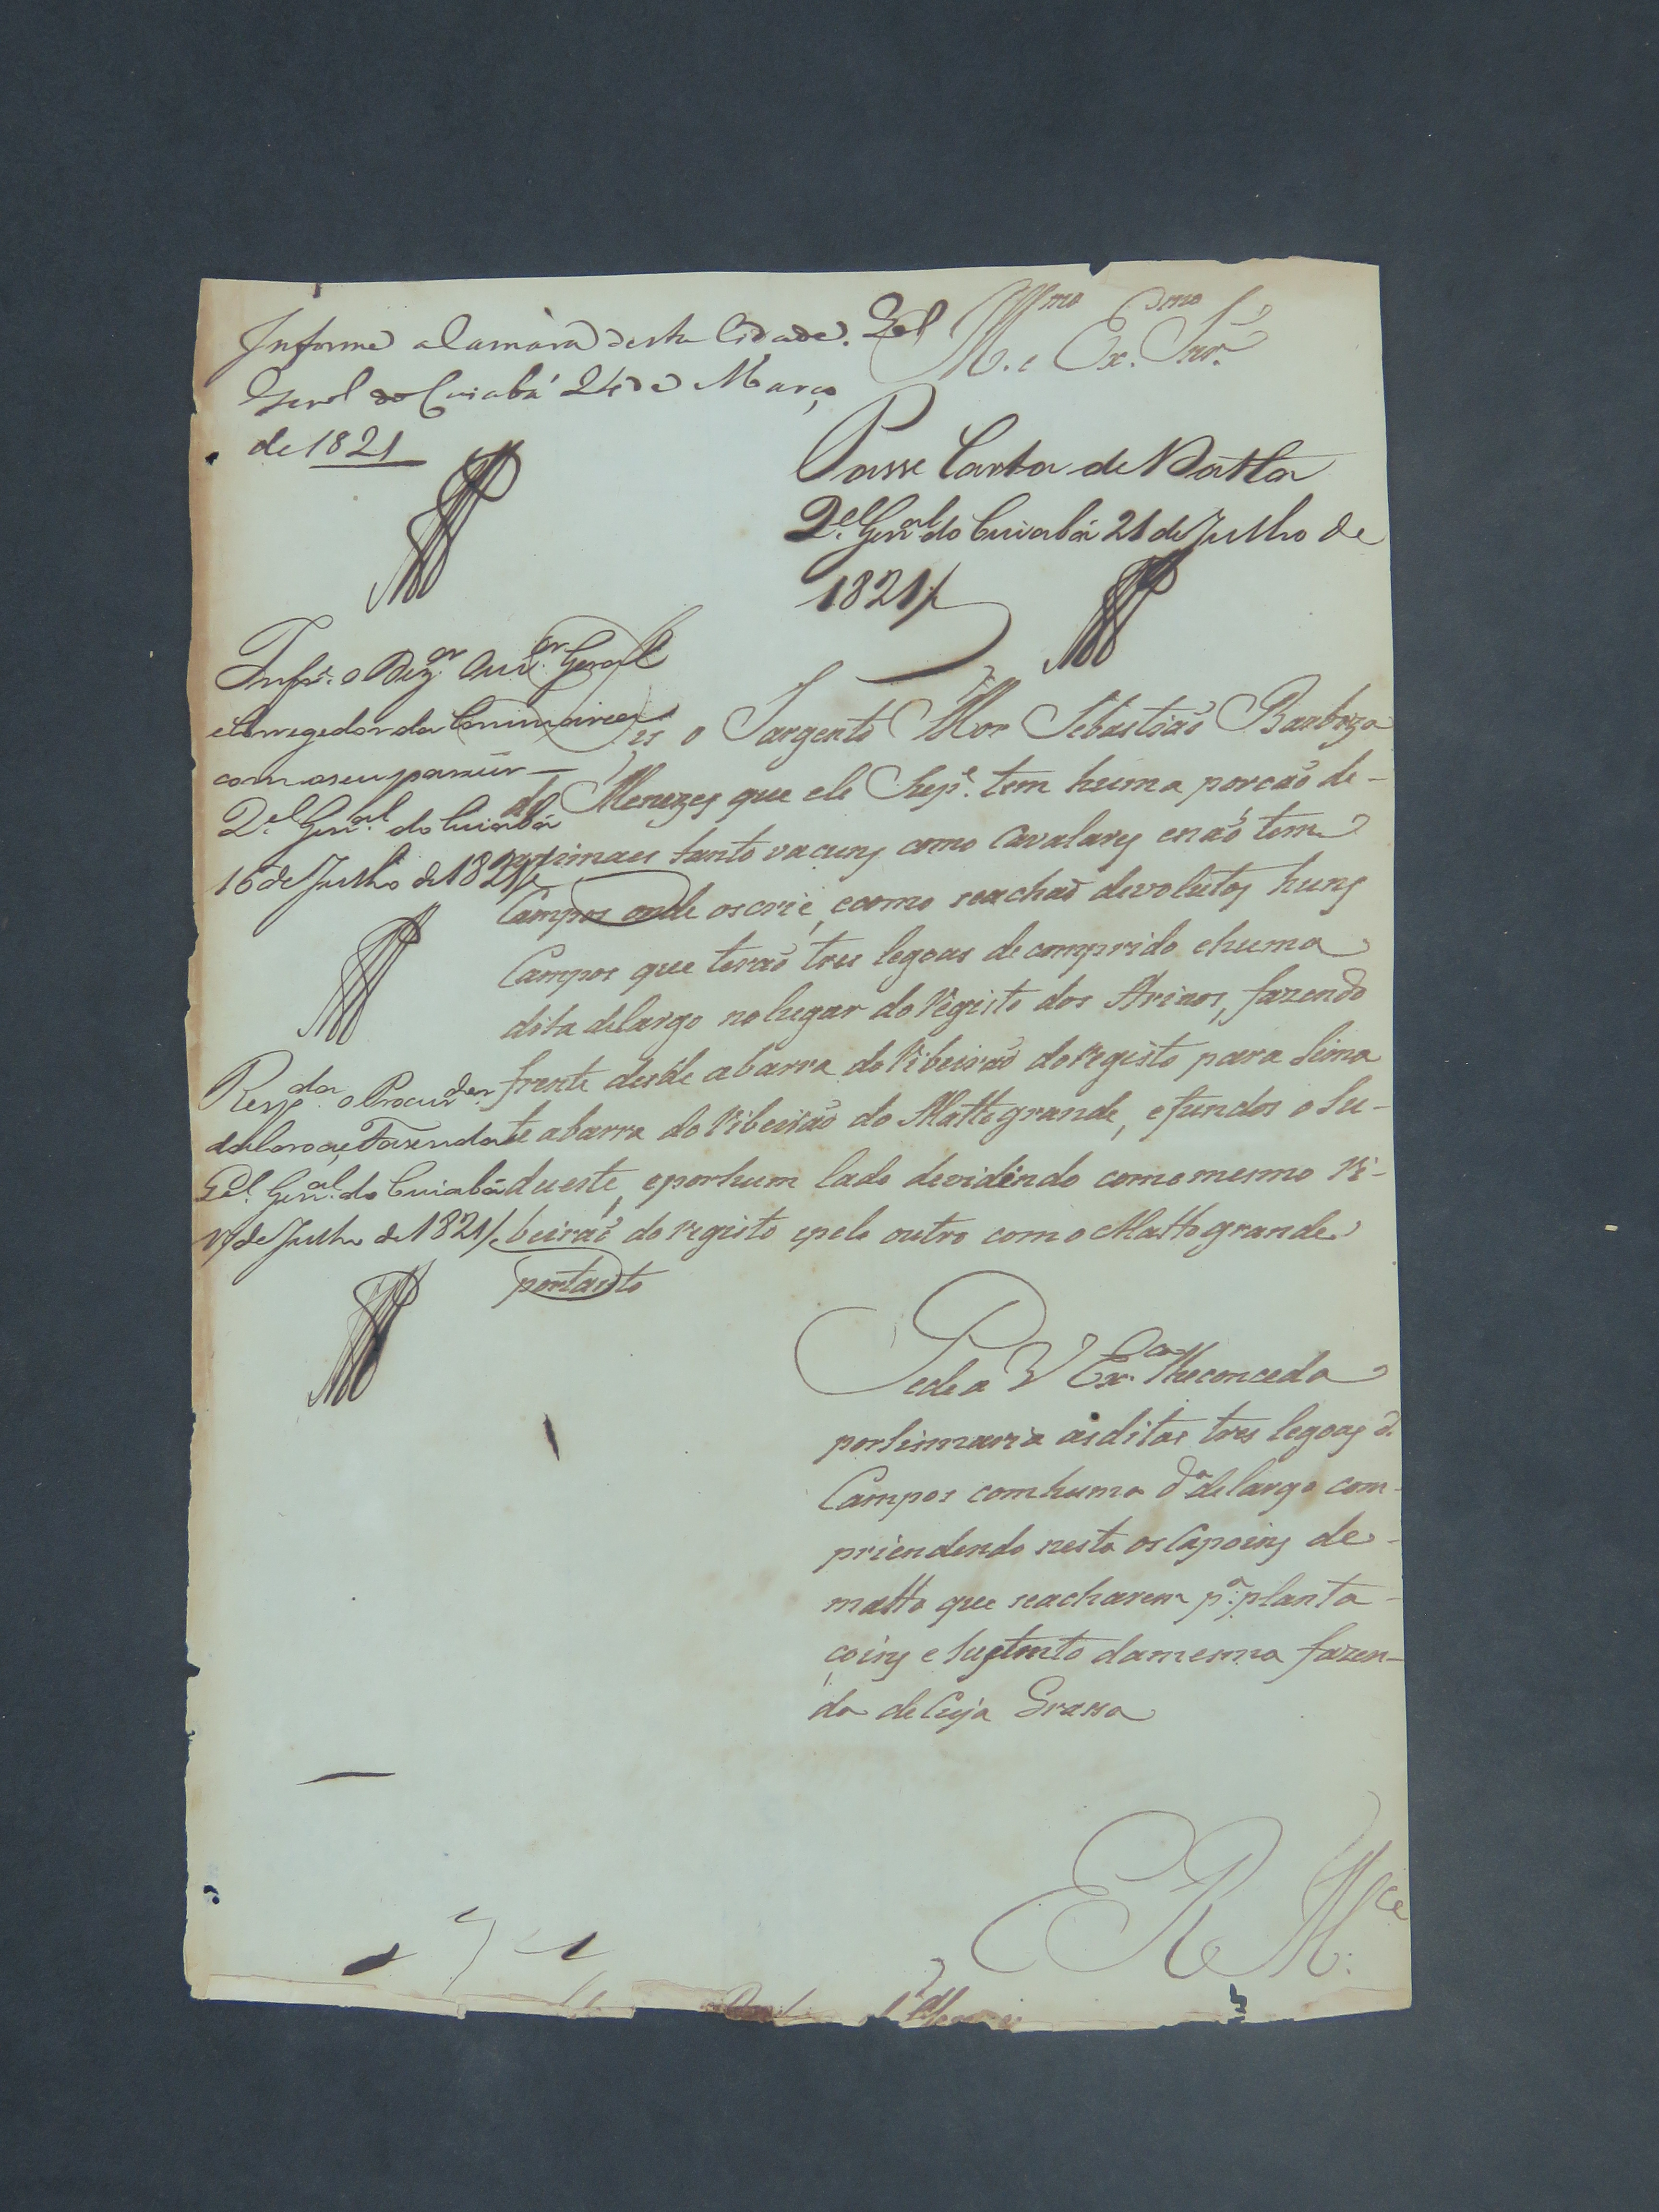 Informe a Camara desta Cidade. Q.el
Geral do Cuiabá 24 de Março
de 1821
Ill.mo e Ex.mo Snr.
Passe Carta de Data
Q.el Gen.al do Cuiabá 21 de Julho de
1821/
Infr.e o Dez.or Ouv.or Geral
e Corregedor da Commarca
com o seu parecer —
Q.el Gen.al do Cuiabá
16 de Julho de 1821/
Resp.da o Procur.dor
da Coroa, e Fazenda
Q.el Gen.al do Cuiabá
17 de Julho de 1821/
Diz o Sargento Mor Sebastiaõ Barboza
de Menezes que ele Sup.e tem huma porcaõ de-
animaes tanto vacuns como Cavalares enaõ tem
Campos onde oscrie, ecomo seachaõ devolutos huns
Campos que teraõ tres legoas decomprido ehuma
dita delargo nolugar do Registo dos Arinos, fazendo
frente desde abarra do Ribeiraõ do Registo para sima
te abarra do Ribeiraõ do Mattogrande, efundos o Su-
dueste, eporhum lado devidindo comomesmo Ri-
beiraõ do Registo epelo outro com o Mattogrande
portanto
Pede a V Ex.ca lheconceda
porsismaria asditas tres legoas d.
Campos comhuma d.a delargo com-
priendendo nesta os Capoins de-
matto que seacharem p.a planta-
coins e sustento damesma fazen-
da de Cuja Grassa
E R M.ce